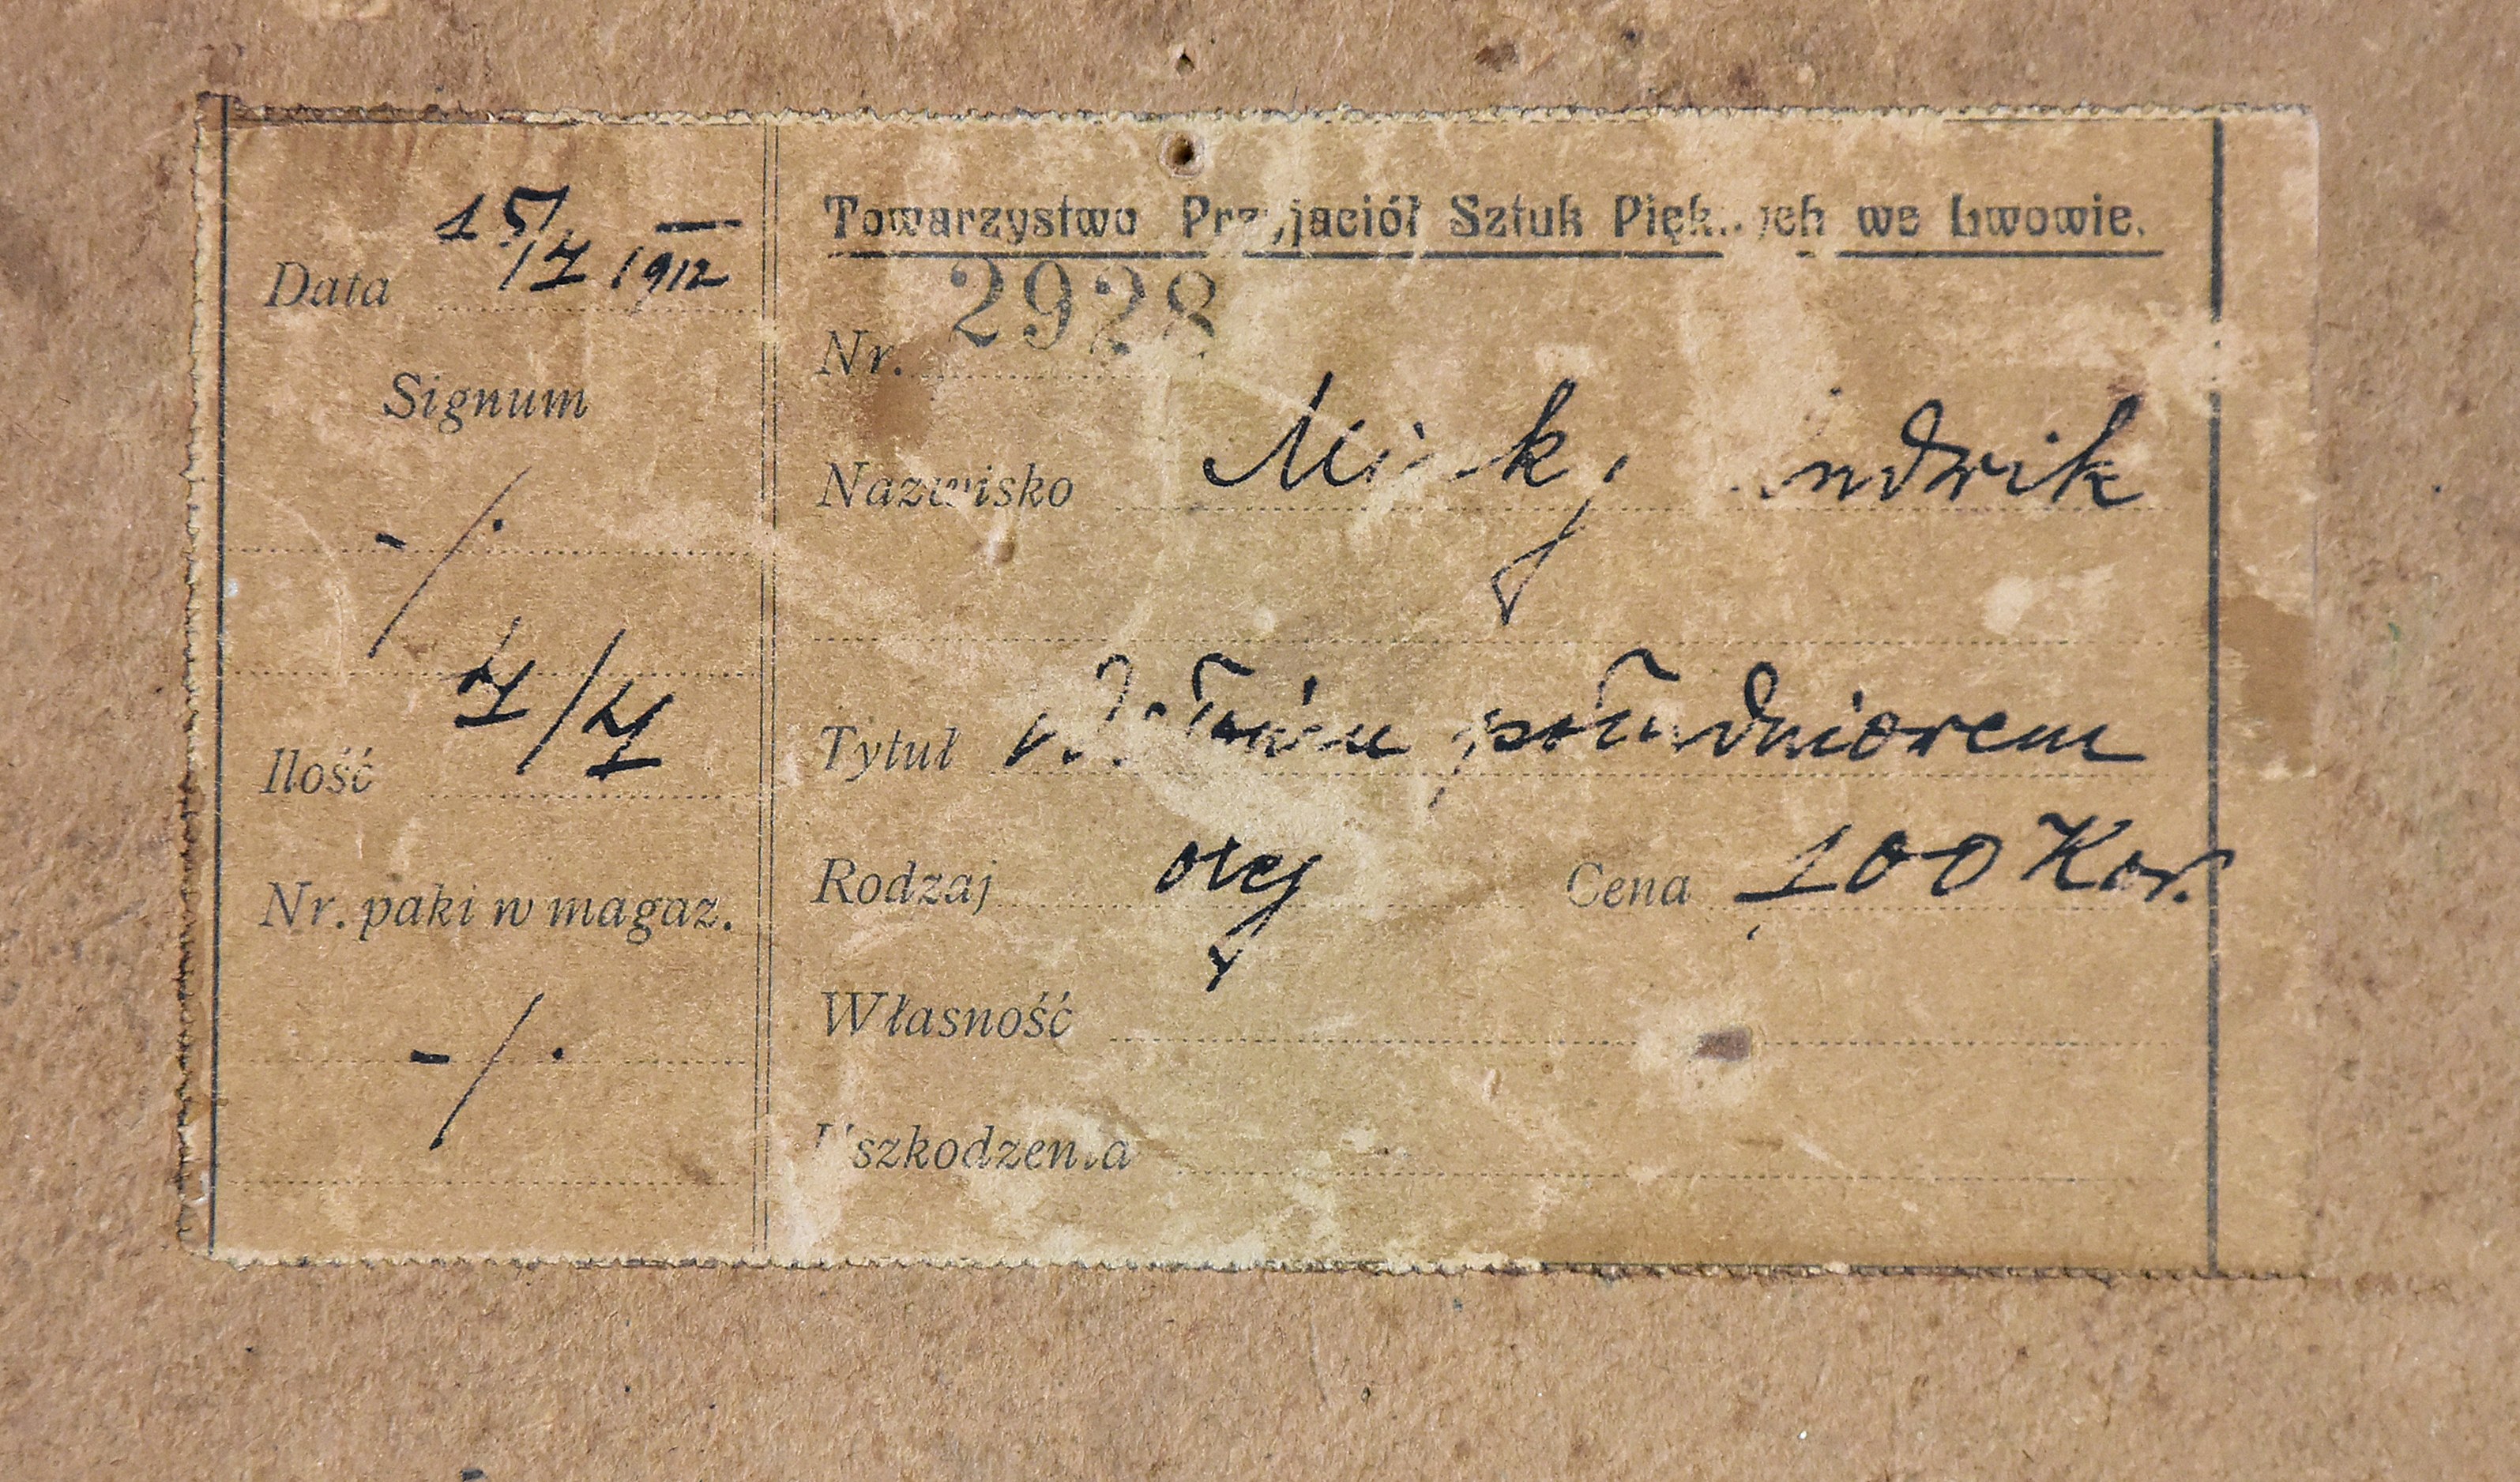 Data 15/7 1912
Signum
-/.
Ilość 7/7
Nr. paki w magaz.
-/.
Towarzystwo Przyjaciół Sztuk Pięknych we Lwowie.
Nr. 2928
Nazwisko
Tytuł południowem
Rodzaj olej Cena 100 Kor.
Własność
Uszkodzenia